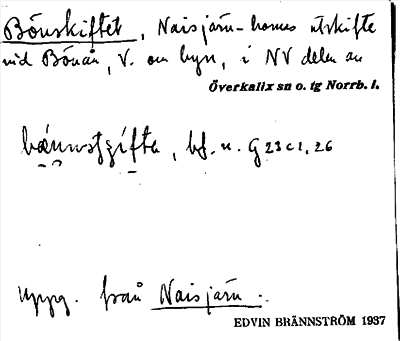 Bönskiftet, Naisjärv-bornas utskifte
vid Bönån, V. om byn, i NV delen av
Överkalix sn o. tg Norrb. l.
bǽnnstʒífte, bf. n. G 23 c 1, 26
uppg. från Naisjärv.
EDVIN BRÄNNSTRÖM 1937